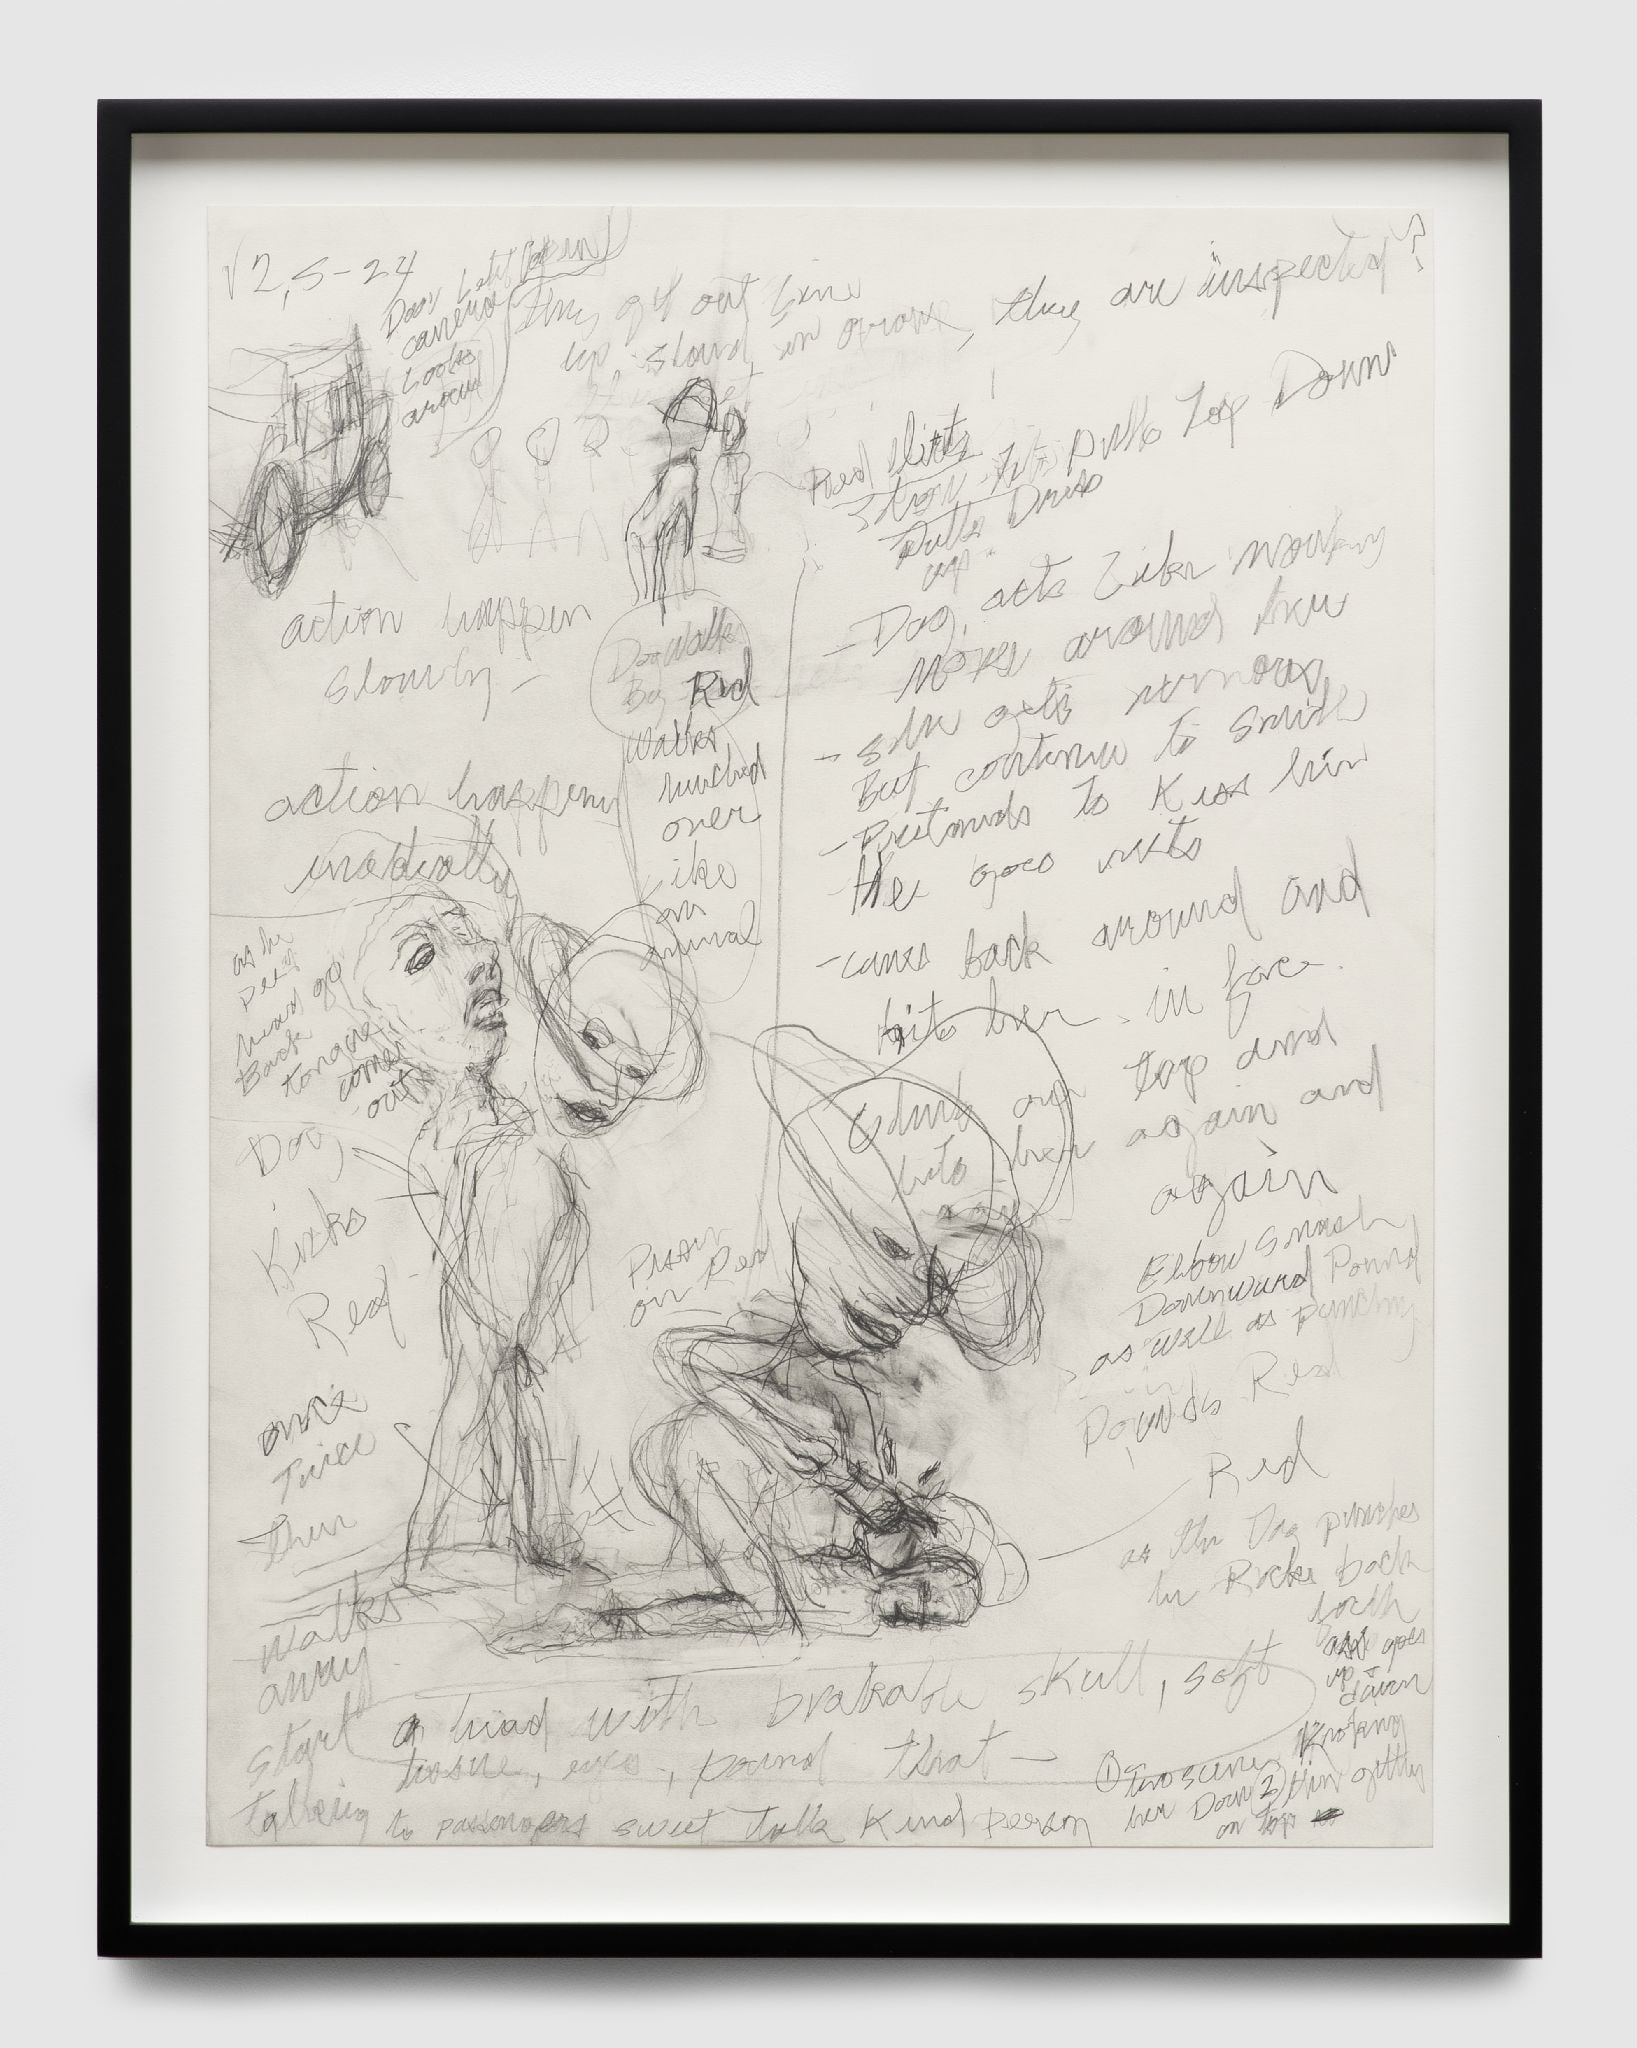 V2, 5-24
Door Left open
carriage
Looks
around
They get out Line
up stand in group, they are inspected
Red flirts
pulls Top Down
Pulls Dress
up -
action happen
slowly -
Dog walks
By Red
walks
hunched
over
like
an
animal
- Dog, acts Like monkey
Moves around tree
- She acts nervous
But continue to smile
- Pretends to Kiss him
He goes nuts
- comes back around and
hits her - in face.
on top and
hits her again and
again
action happens
as he
pee's
head go
Back
tongue
comes
out
Dog
Kicks
Red -
once
Twice
Then
walks
away
start
talking
to passengers sweet talk Kind person
on Red
Elbow smash
Downward Pound
as well as punching
Pounds Red
Red
as the Dog punches
he Rocks back
forth
and goes
up +
down
a head with brakable skull, soft
tissue, eyes, pound that -
① Two scenes Knoking
her Down ② Him getting
on top